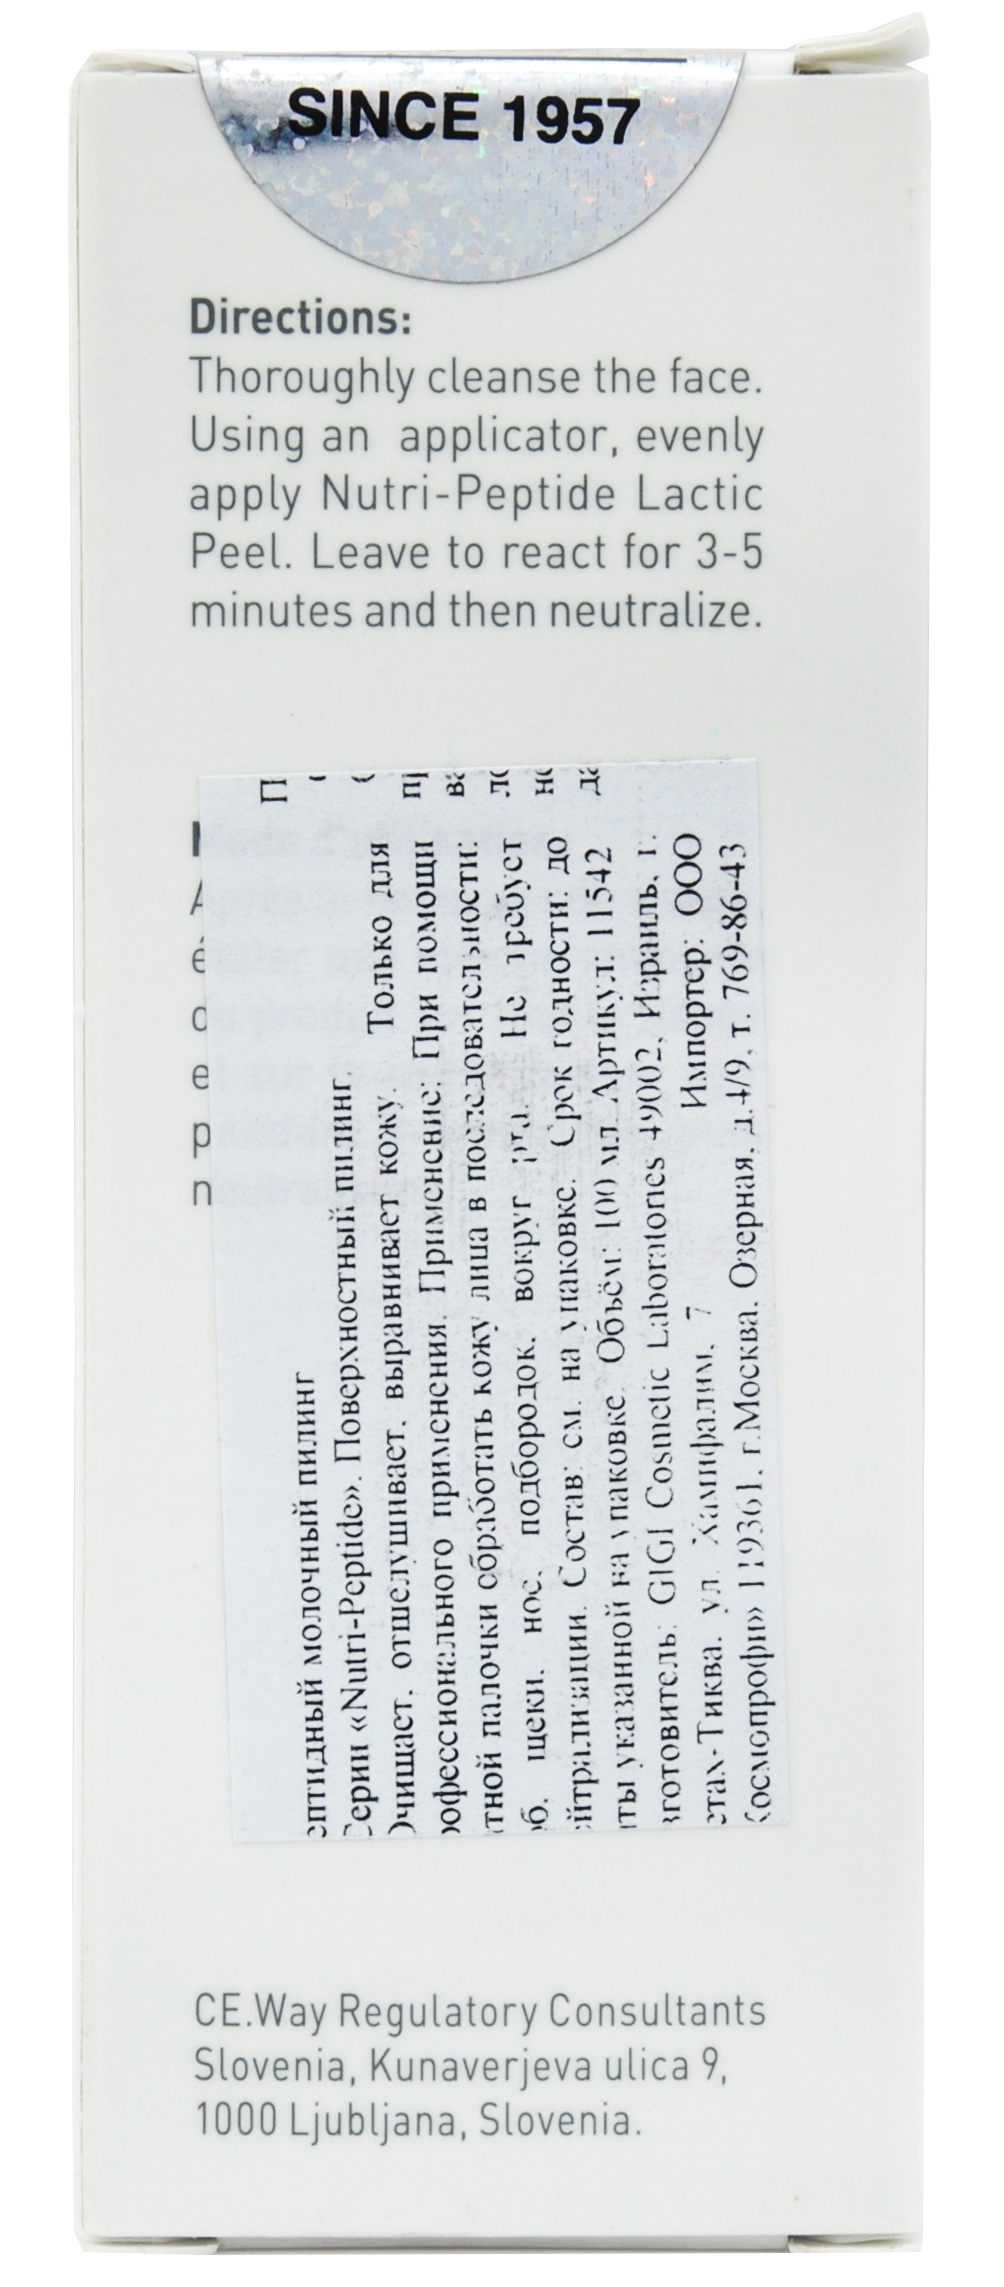 SINCE 1957
Directions:
Thoroughly cleanse the face.
Using an applicator, evenly
apply Nutri-Peptide Lactic
Peel. Leave to react for 3-5
minutes and then neutralize.
птидный молочный пилинг
Серии «Nutri-Peptide». Поверхностный пилинг.
Очищает, отшелушивает, выравнивает кожу. Только для
рофессионального применения. Применение: При помощи
тной палочки обработать кожу лица в последовательности:
об, щеки, нос, подбородок, вокруг рта. Не требует
йтрализации. Состав: см. на упаковке. Срок годности: до
ты указанной на упаковке. Объём: 100 мл. Артикул: 11542
зготовитель: GIGI Cosmetic Laboratories 49002, Израиль, г.
етах-Тиква, ул. Хамифалим, 7 Импортер: ООО
Космопрофи» 119361, г.Москва, Озерная, д.4/9, т. 769-86-43
CE.Way Regulatory Consultants
Slovenia, Kunaverjeva ulica 9,
1000 Ljubljana, Slovenia.